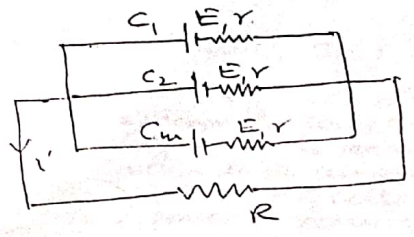 C₁ E, r
C₂ E, r
Cm E, r
i
R